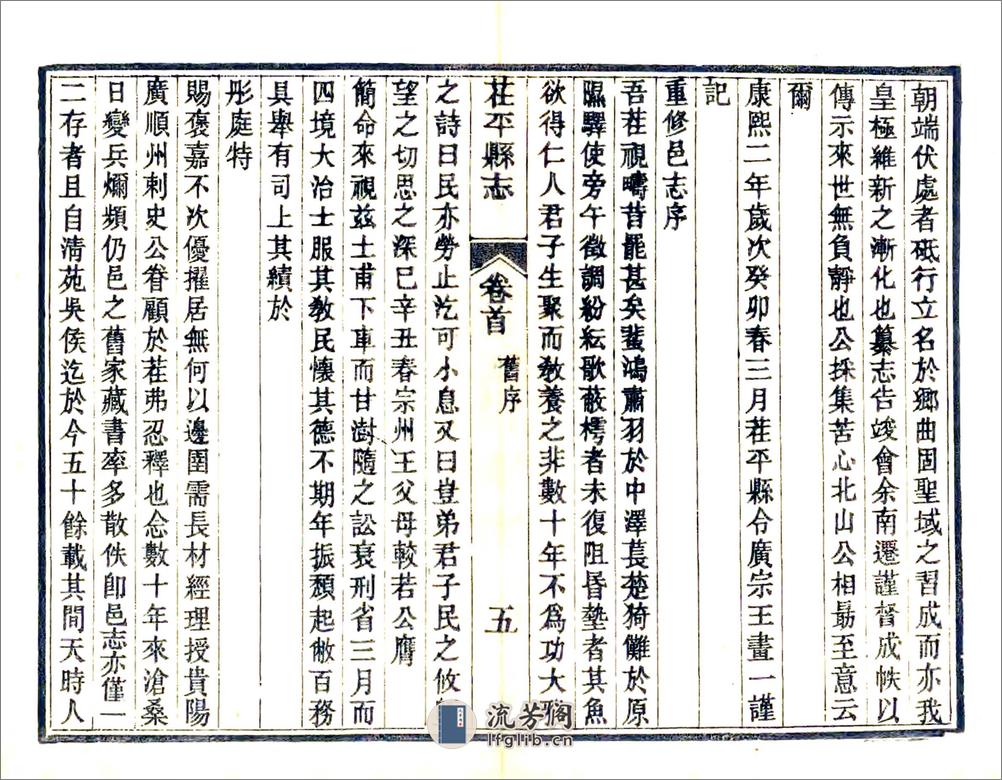 朝端伏處者砥行立名於鄉曲固聖域之習成而亦我
皇極維新之漸化也纂志告竣會余南遷謹督成帙以
傳示來世無負靜也公採集苦心北山公相勗至意云
爾
康熙二年歲次癸卯春三月茌平縣令廣宗王畫一謹
記
重修邑志序
吾茌視疇昔罷甚矣蜚鴻肅羽於中澤萇楚猗儺於原
隰驛使旁午徵調紛紜歌蔽樗者未復阻昏墊者其魚
欲得仁人君子生聚而敎養之非數十年不爲功大雅
茌平縣志
卷首
舊序
五
之詩曰民亦勞止汔可小息又曰豈弟君子民之攸
望之切思之深巳辛丑春宗州王父母較若公膺
簡命來視兹土甫下車而甘澍隨之訟衰刑省三月而
四境大治士服其敎民懷其德不期年振頹起敝百務
具舉有司上其績於
彤庭特
賜褒嘉不次優擢居無何以邊圉需長材經理授貴陽
廣順州刺史公眷顧於茌弗忍釋也念數十年來滄桑
日變兵燹頻仍邑之舊家藏書率多散佚卽邑志亦僅一
二存者且自淸苑吳侯迄於今五十餘載其間天時人
流芳阁
lfglib.cn